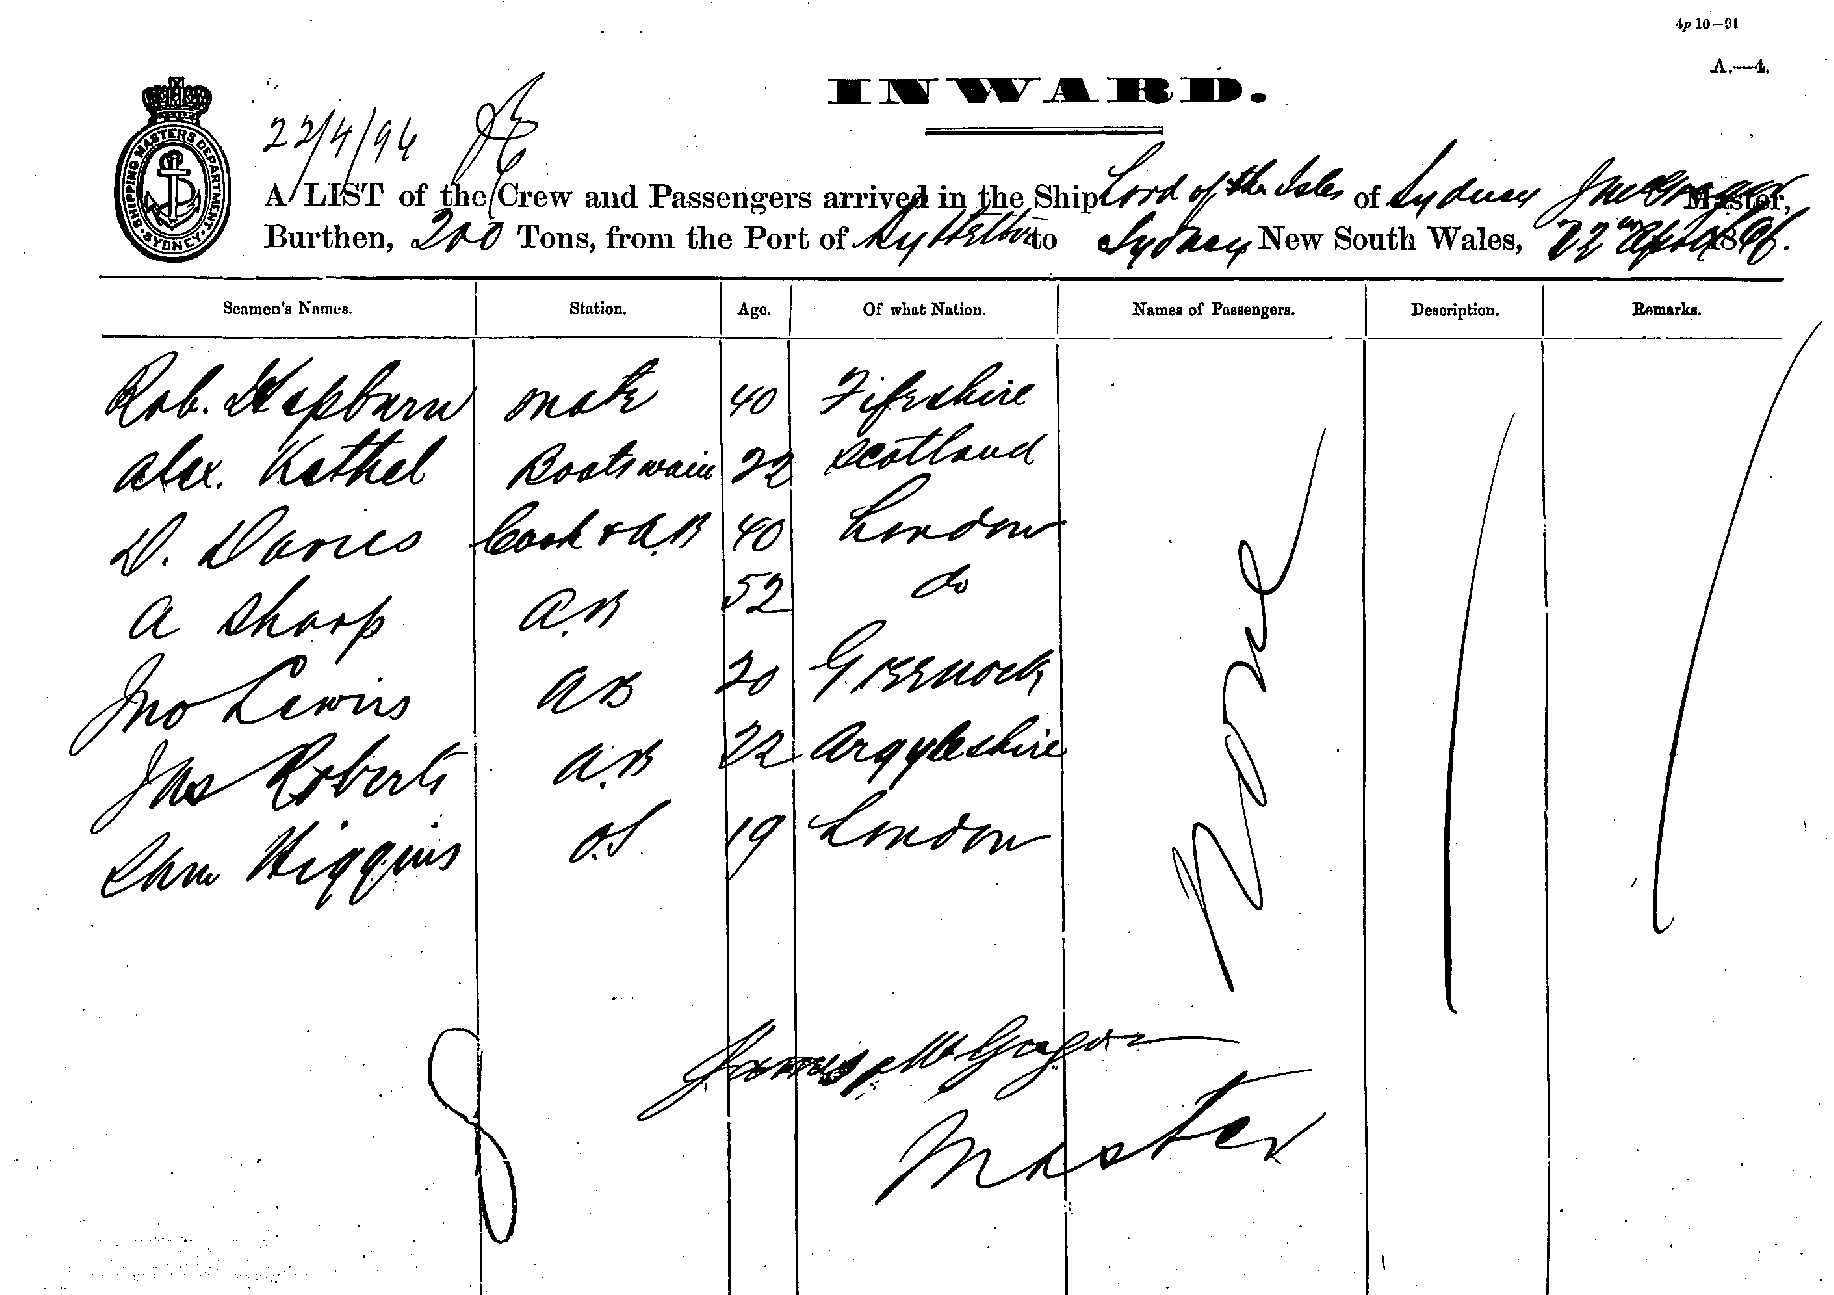 4p 10—91
A.—4.
INWARD.
SHIPPING MASTERS DEPARTMENT SYDNEY
22/4/96
A LIST of the Crew and Passengers arrived in the Ship Lord of the Isles of Sydney Jas McGregor Master,
Burthen, 200 Tons, from the Port of Lyttelton to Sydney New South Wales, 22nd April 1896.
Seamen's Names. Station. Age. Of what Nation. Names of Passengers. Description. Remarks.
Rob. Hepburn mate 40 Fifeshire
Alex. Kethel Boatswain 22 Scotland
D. Davies Cook & A.B 40 London
A Sharp A.B 52 do
Jno Lewis AB 20 Greenock
Jas Roberts A.B 22 Argyleshire
Sam Higgins O.S 19 London
None
8
James McGregor
Master